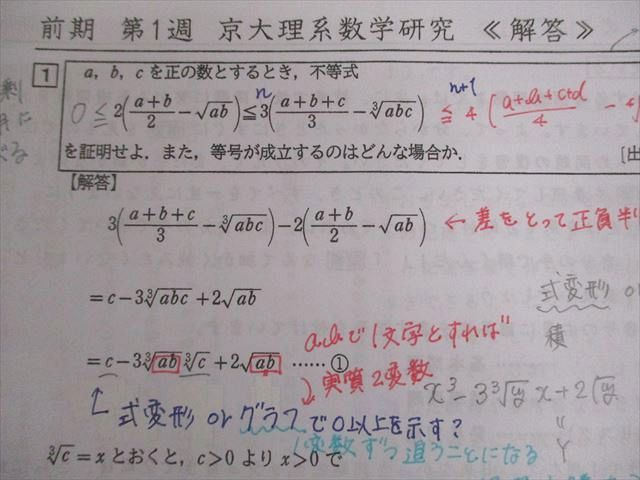 前期 第1週 京大理系数学研究 ≪解答≫
1 a, b, c を正の数とするとき, 不等式
0 ≦ 2((a+b)/2 − √ab) ≦ 3((a+b+c)/3 − ∛abc) ≦ 4(
n
n+1
を証明せよ. また, 等号が成立するのはどんな場合か.
[解答]
3((a+b+c)/3 − ∛abc) − 2((a+b)/2 − √ab) ← 差をとって正負判
= c − 3∛abc + 2√ab
式変形 or
積
abで1文字とすれば
= c − 3∛ab ∛c + 2√ab ……①
実質2変数
式変形 or グラフで0以上を示す?
1変数ずつ追うことになる
∛c = x とおくと, c > 0 より x > 0 で